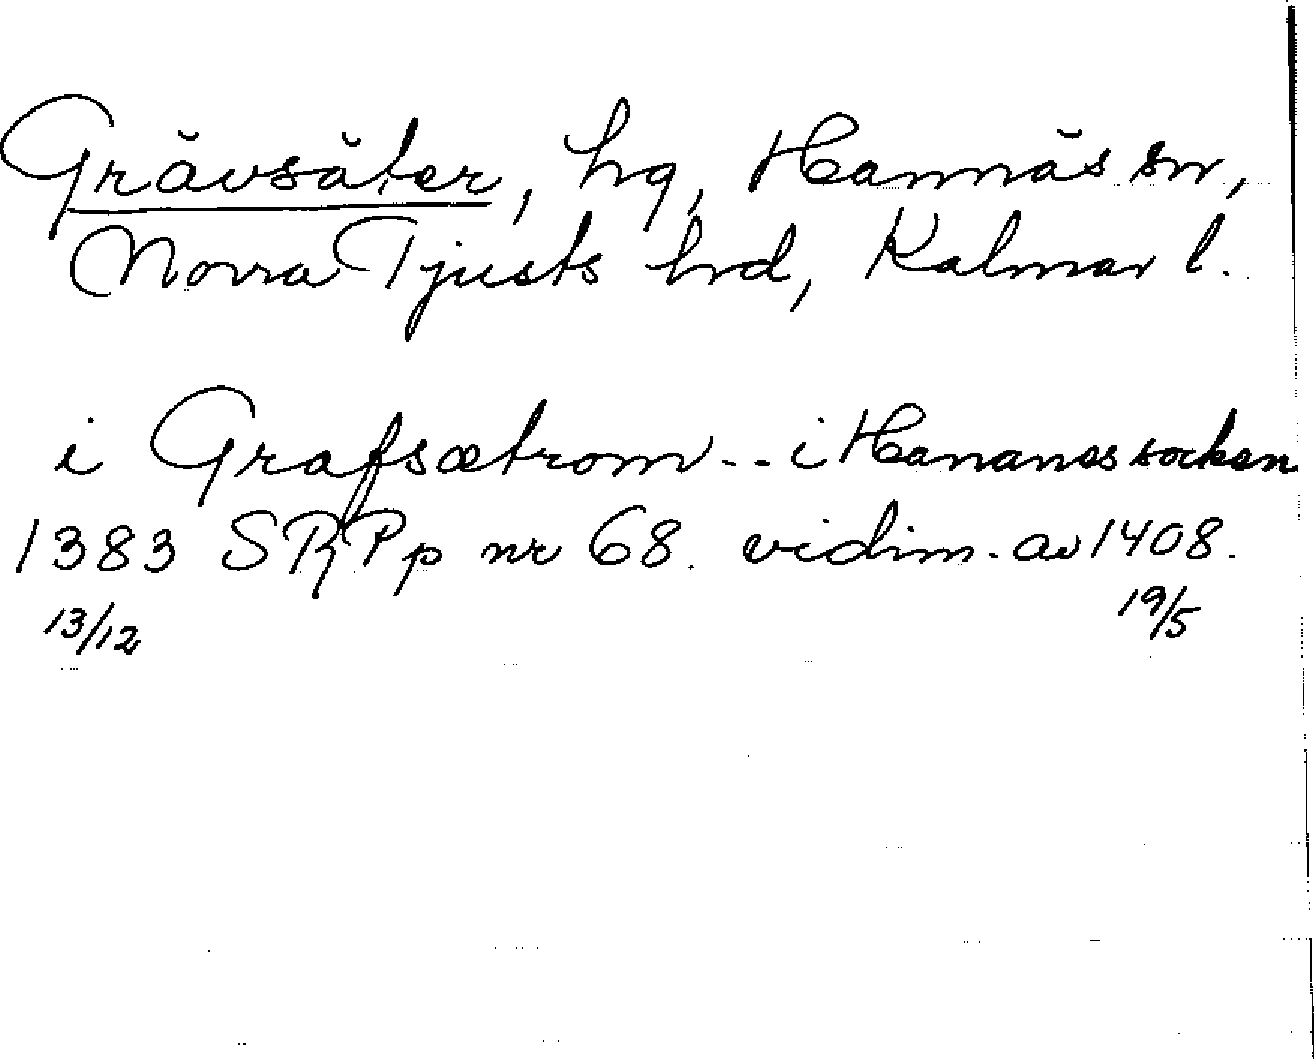 Grävsäter, hg, Hannäs sn,
Norra Tjusts hrd, Kalmar l.
i Grafsætrom - - i Hananes socken
1383 SRPp nr 68. vidim. av 1408.
13/12 19/5